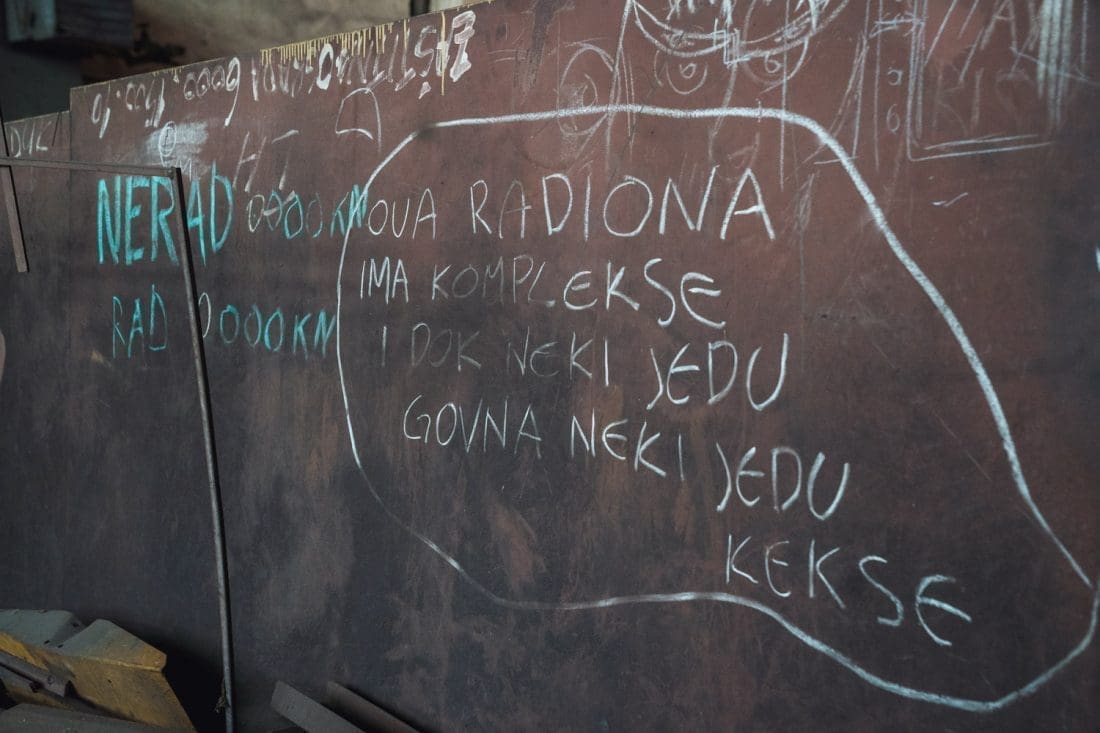 NERAD 0000KN
RAD 0000KN
OVA RADIONA
IMA KOMPLEKSE
I DOK NEKI JEDU
GOVNA NEKI JEDU
KEKSE